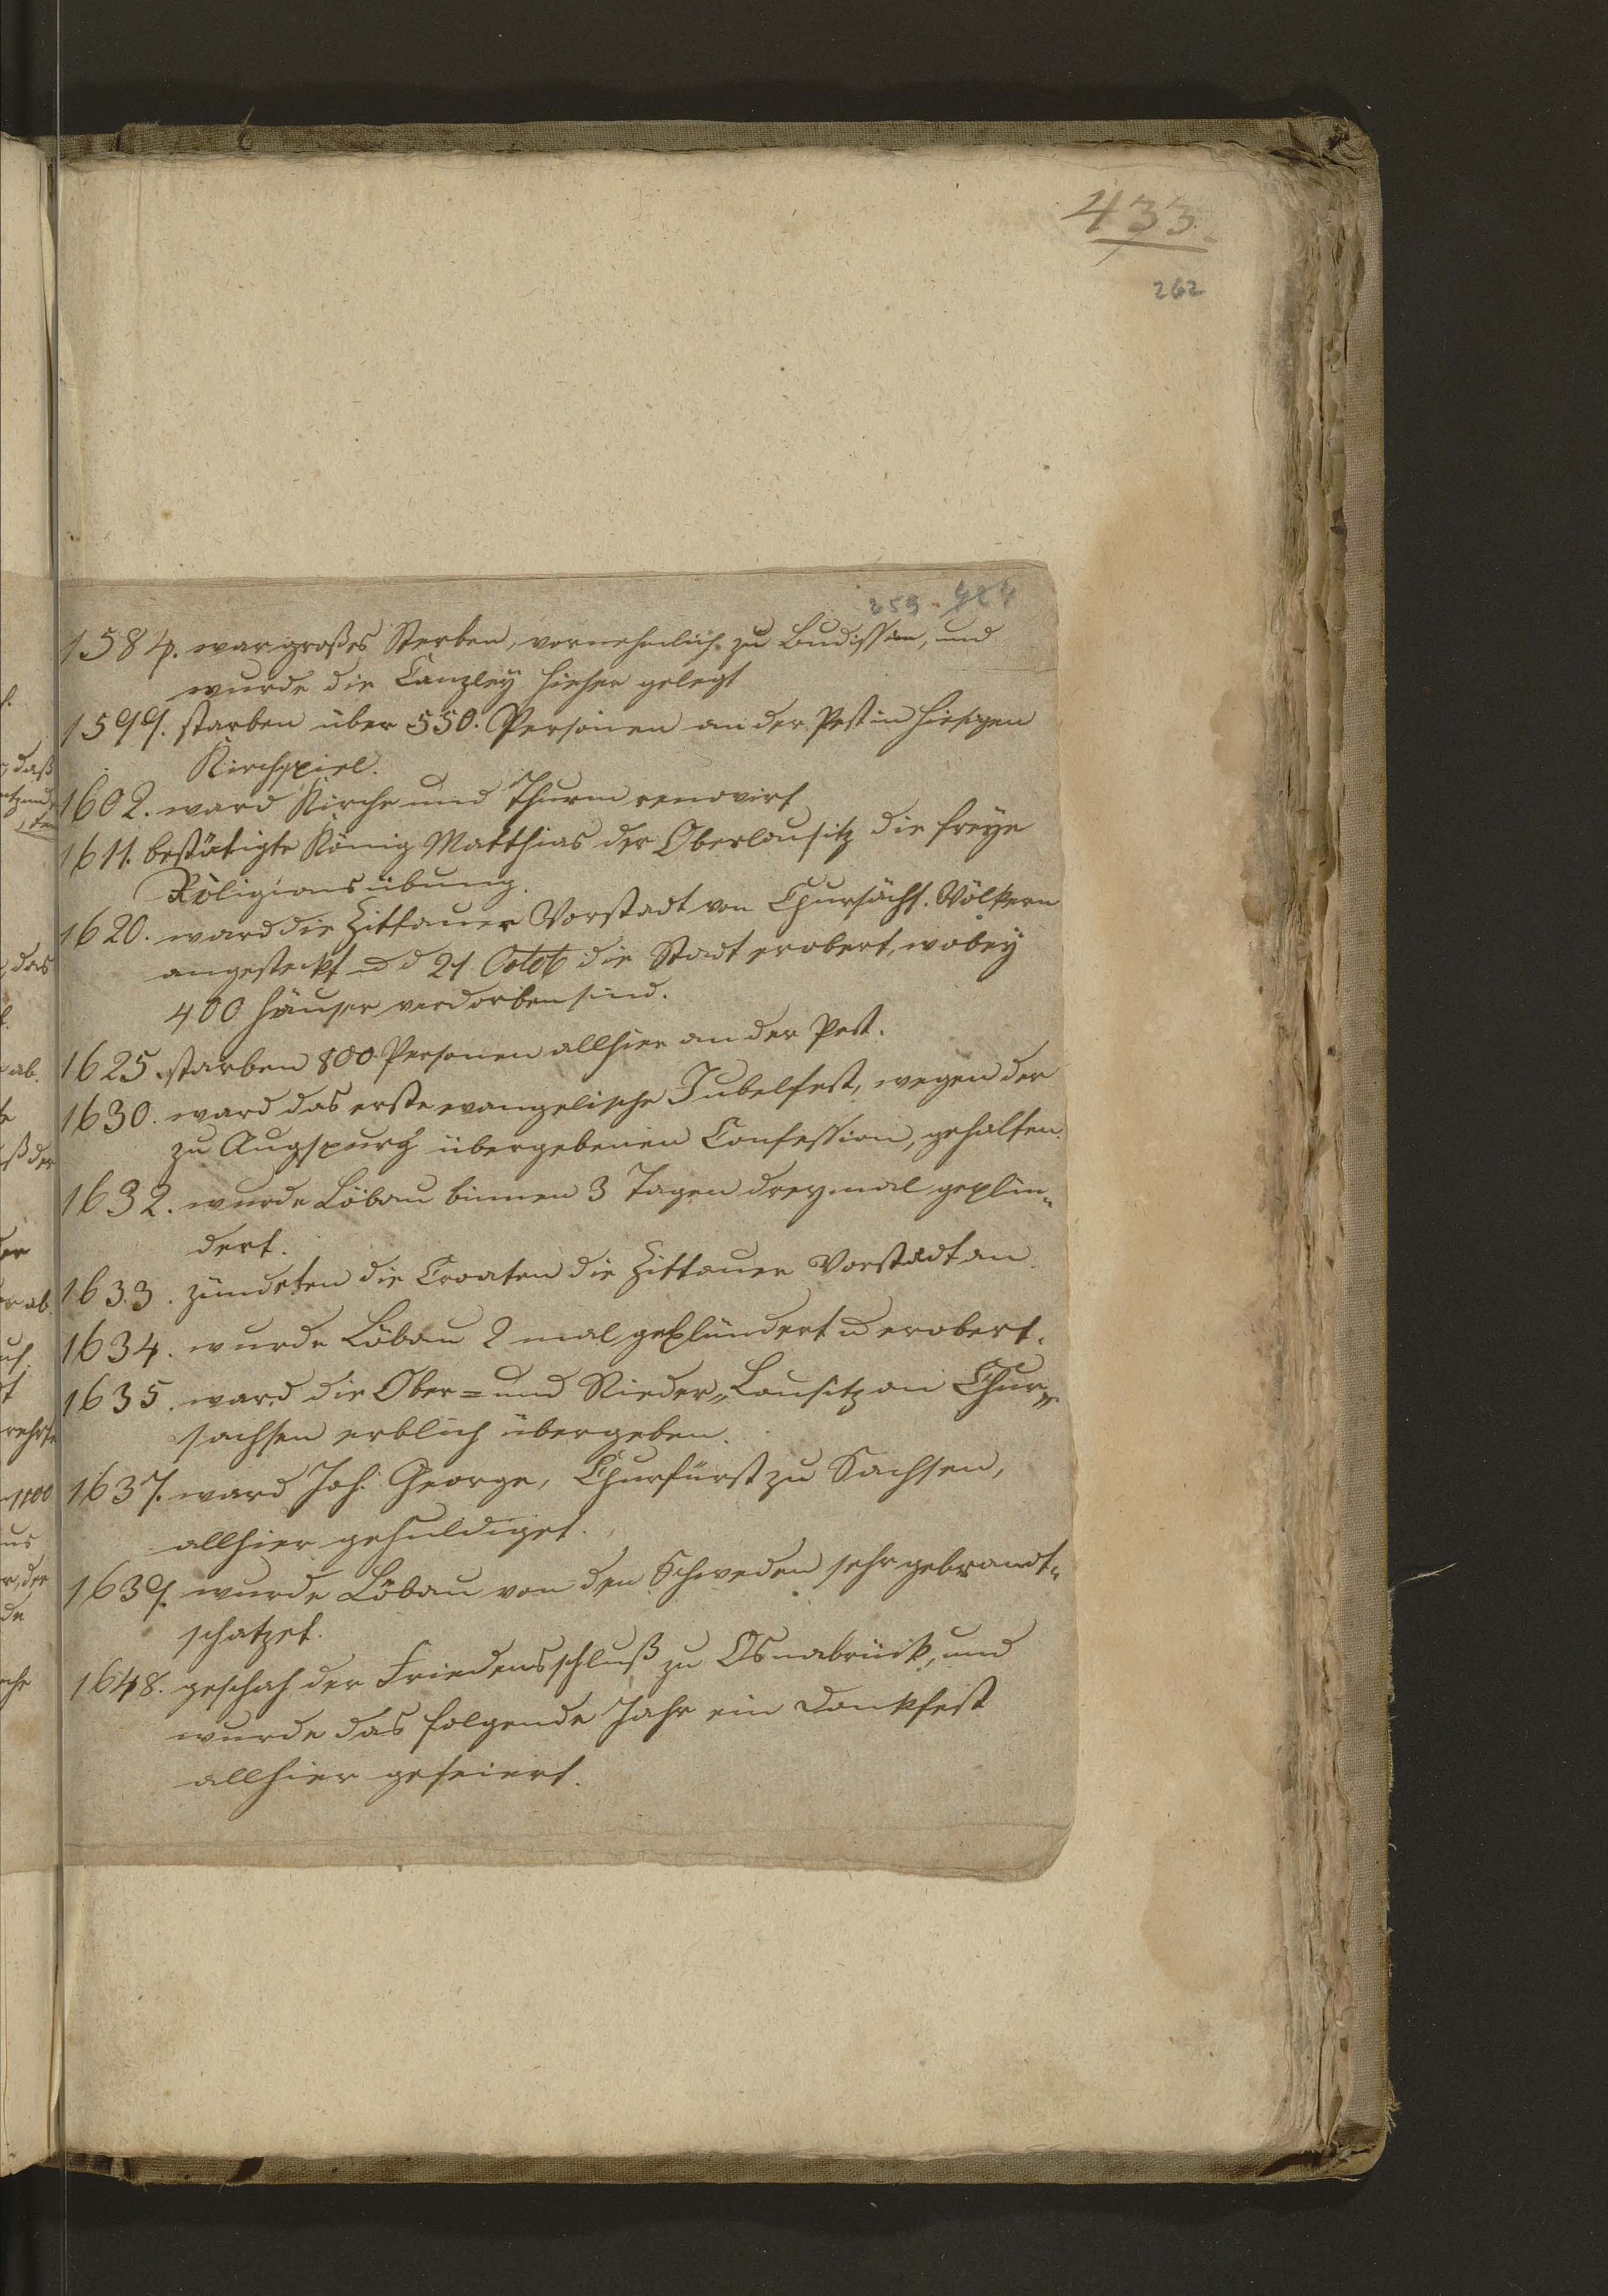 433.
262
259. 424
1584. war großes Sterben, vornehmlich zu Budissin, und
wurde die Canzley hieher gelegt
1599. starben über 550. Personen an der Pest in hiesigen
Kirchspiel.
1602. ward Kirche und Thurm renovirt
1611. bestätigte König Matthias der Oberlausitz die freye
Religionsübung.
1620. ward die Zittauer Vorstadt von Chursächs. Völkern
angesteckt u d 21. Octob die Stadt erobert, wobey
400 Häuser verdorben sind.
1625. starben 800. Personen allhier an der Pest.
1630. ward das erste evangelische Jubelfest, wegen der
zu Augspurg übergebenen Confession, gehalten.
1632. wurde Löbau binnen 3 Tagen dreymal geplün„
dert.
1633. zündeten die Croaten die Zittauer Vorstadt an.
1634. wurde Löbau 2 mal geplündert u erobert.
1635. ward die Ober= und Nieder„Lausitz an Chur„
sachsen erblich übergeben.
1637. ward Joh. George, Churfürst zu Sachsen,
allhier gehuldiget.
1639. wurde Löbau von den Schweden sehr gebrandt„
schatzet.
1648. geschah der Friedensschluß zu Osnabrück, und
wurde das folgende Jahr ein Dankfest
allhier gefeiert.